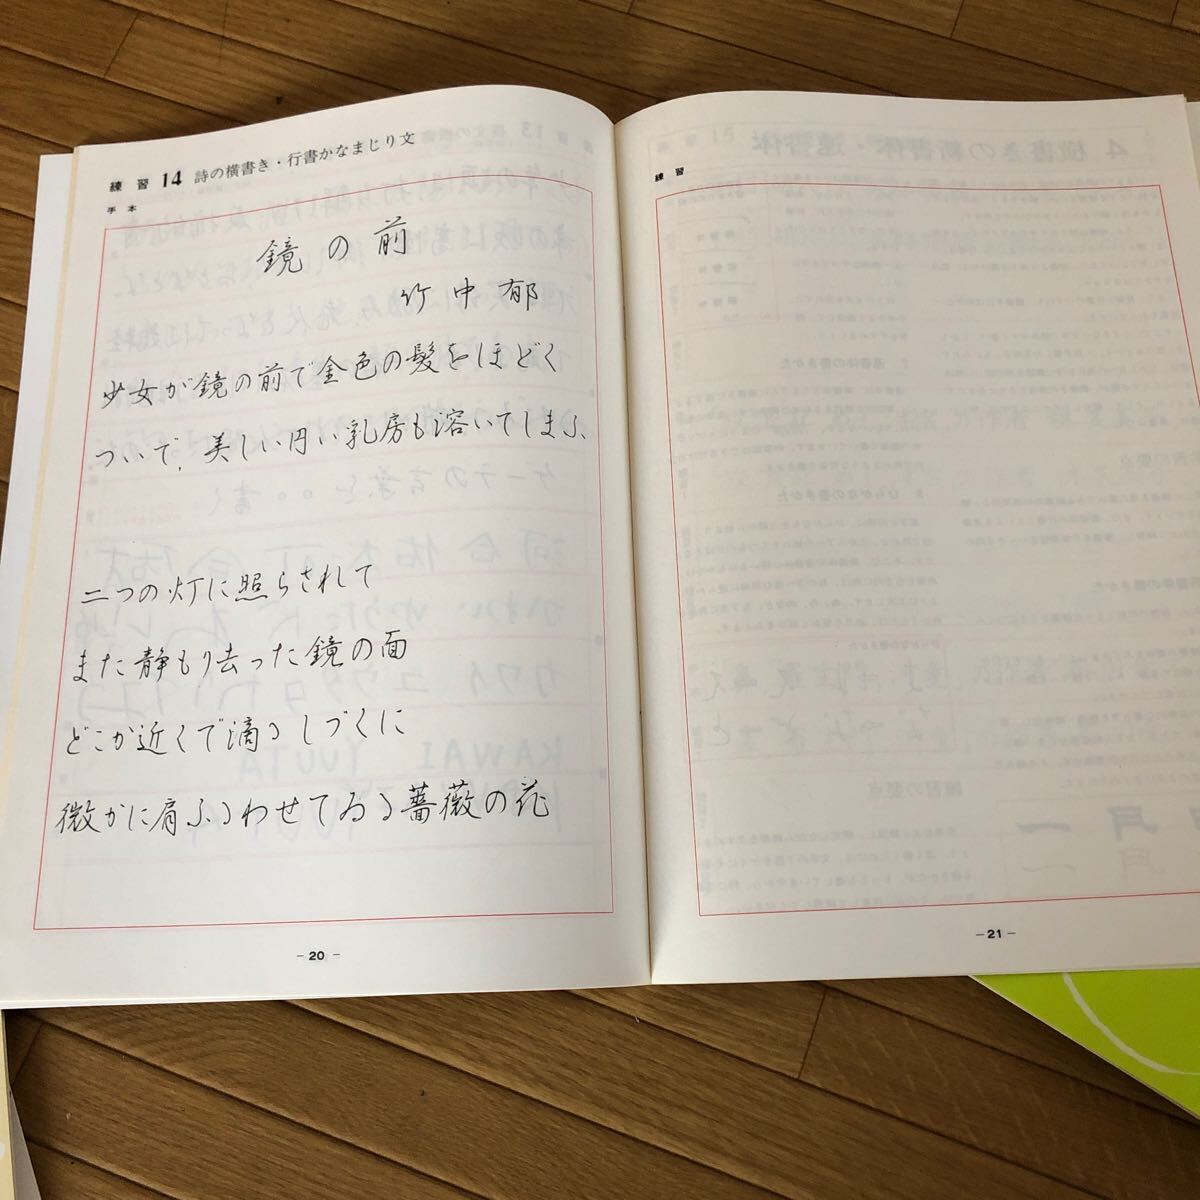 練習 14 詩の横書き・行書かなまじり文
手本
鏡の前
竹中郁
少女が鏡の前で金色の髪をほどく
ついで、美しい円い乳房も溶いてしまふ、
二つの灯に照らされて
また静もり去った鏡の面
どこか近くで滴るしづくに
微かに肩ふるわせてゐる薔薇の花
－20－
練習
－21－